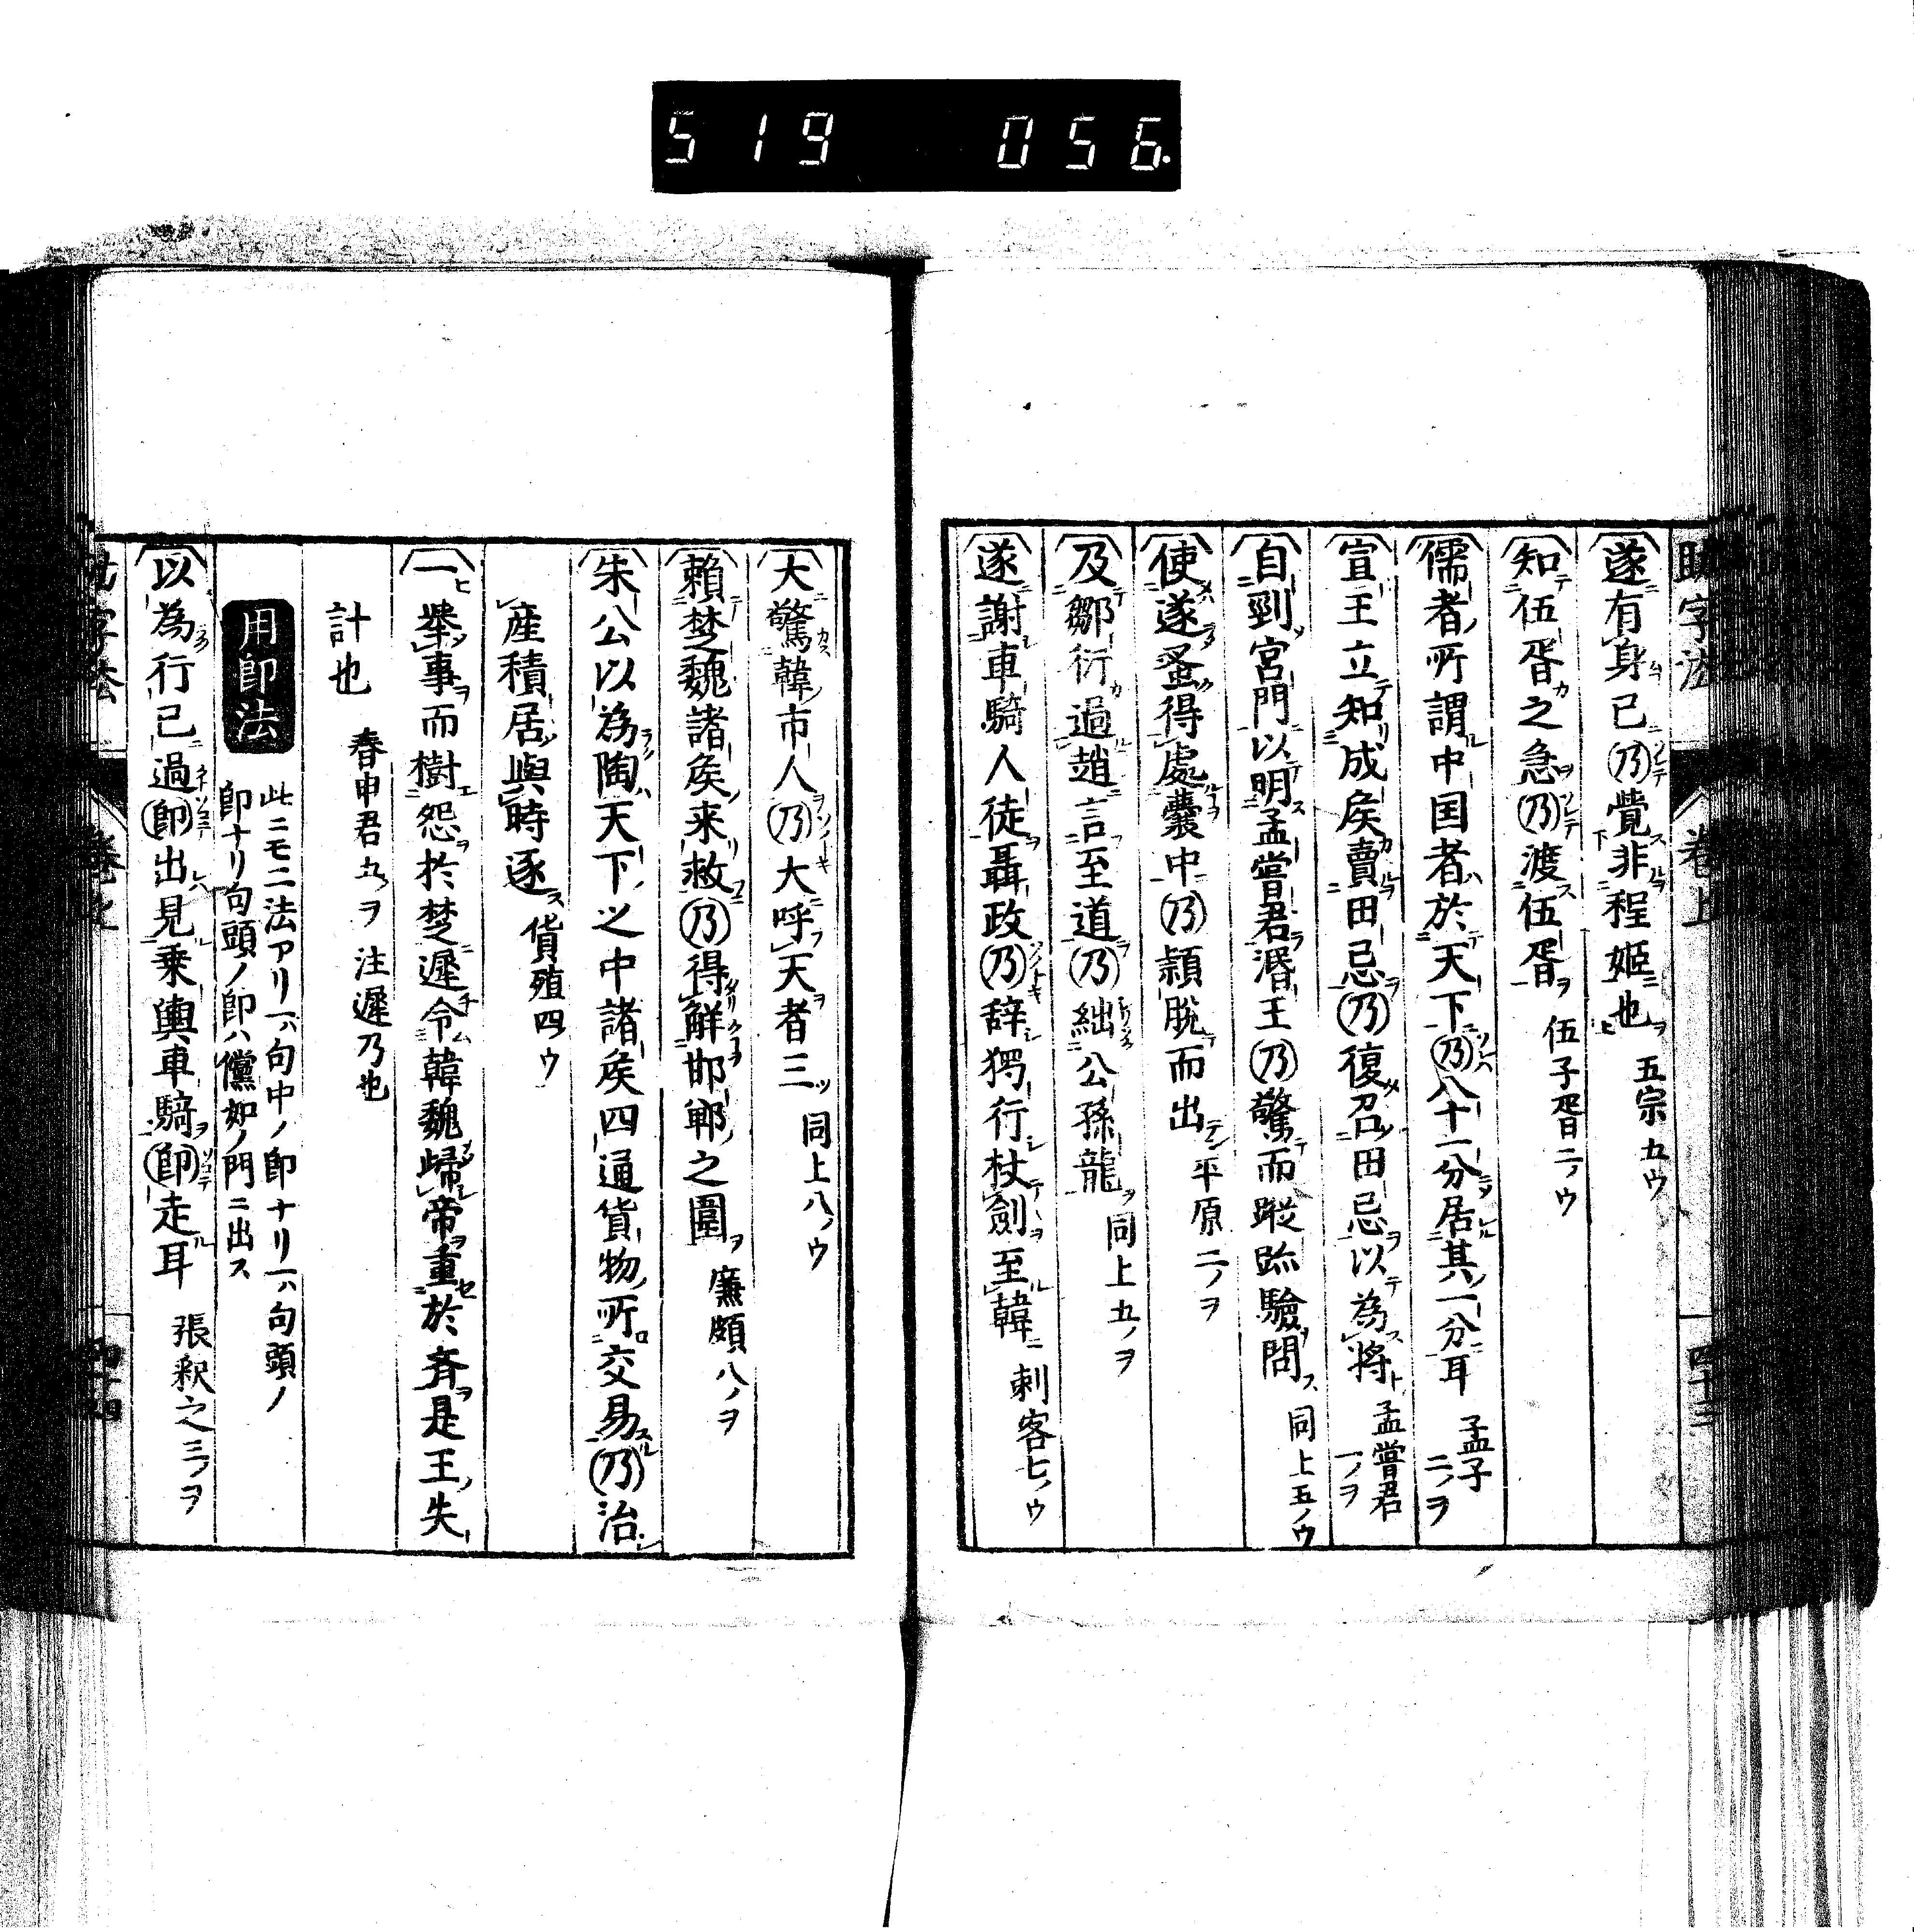 519 056
助字法 卷上 四十三
遂有身已乃覺非程姬也 五宗五ウ
知伍胥之急乃渡伍胥 伍子胥二ノウ
儒者所謂中国者於天下乃八十一分居其一分耳 孟子二ノヲ
宣王立知成矦賣田忌乃復召田忌以為将 孟嘗君一ノヲ
自剄宮門以明孟嘗君湣王乃驚而蹤跡驗問 同上五ノウ
使遂蚤得處囊中乃頴脫而出 平原二ノヲ
及鄒衍過趙言至道乃絀公孫龍 同上五ノヲ
遂謝車騎人徒聶政乃辞獨行杖劍至韓 刺客七ノウ
大驚韓市人乃大呼天者三 同上八ノウ
賴楚魏諸矦来救乃得解邯鄲之圍 廉頗八ノヲ
朱公以為陶天下之中諸矦四通貨物所交易乃治
産積居與時逐 貨殖四ウ
一舉事而樹怨於楚遲令韓魏歸帝重於齊是王失
計也 春申君九ヲ 注遲乃也
用即法 此ニモ二法アリ一ハ句中ノ即ナリ一ハ句頭ノ
即ナリ句頭ノ即ハ儻如ノ門ニ出ス
以為行已過即出見乗輿車騎即走耳 張釈之三ノヲ